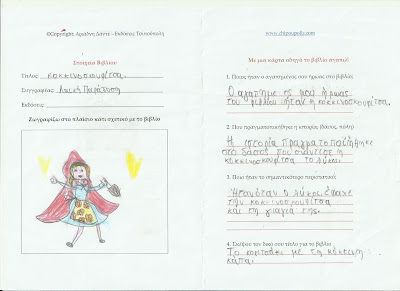 ©Copyright: Αριάδνη Δάντε - Εκδόσεις Τσιπούπολη
Στοιχεία Βιβλίου
Τίτλος: Κοκκινοσκουφίτσα.
Συγγραφέας: Λουκή Παράτυση
Εκδόσεις:
Ζωγραφίζω στο πλαίσιο κάτι σχετικό με το βιβλίο
www.chipoupolis.com
Με μια κάρτα οδηγό το βιβλίο αγαπώ!
1. Ποιος ήταν ο αγαπημένος σου ήρωας στο βιβλίο;
Ο αγαπημένος μου ήρωας
του βιβλίου ήταν η κοκκινοσκουφίτσα.
2. Που πραγματοποιήθηκε η ιστορία (δάσος, πόλη)
Η ιστορία πραγματοποιήθηκε
στο δάσος που συνάντησε η
κοκκινοσκουφίτσα το λύκο.
3. Ποιο ήταν το σημαντικότερο περιστατικό;
Ήταν όταν ο λύκος έφαγε
την κοκκινοσκουφίτσα
και τη γιαγιά της.
4. Σκέψου τον δικό σου τίτλο για το βιβλίο
Το κοριτσάκι με τη κόκκινη
κάπα.